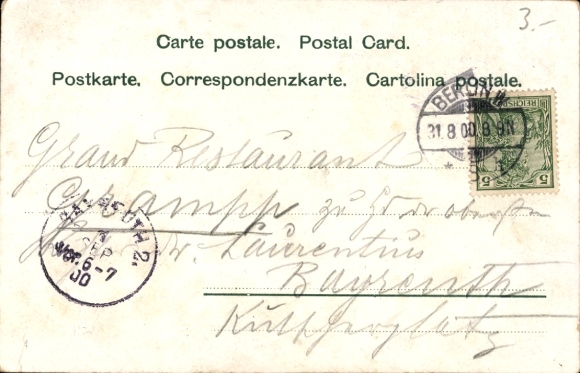 3.-
Carte postale. Postal Card.
Postkarte. Correspondenzkarte. Cartolina postale.
BERLIN W.
31.8.00.8-9N
REICHSPOST
5 5
Grand Restaurant
Grampp zu Hd dr obersten
dr. Laurentius
Bayreuth
Kutscherplatz
BAYREUTH 2.
1
SEP
VOR. 6-7
00